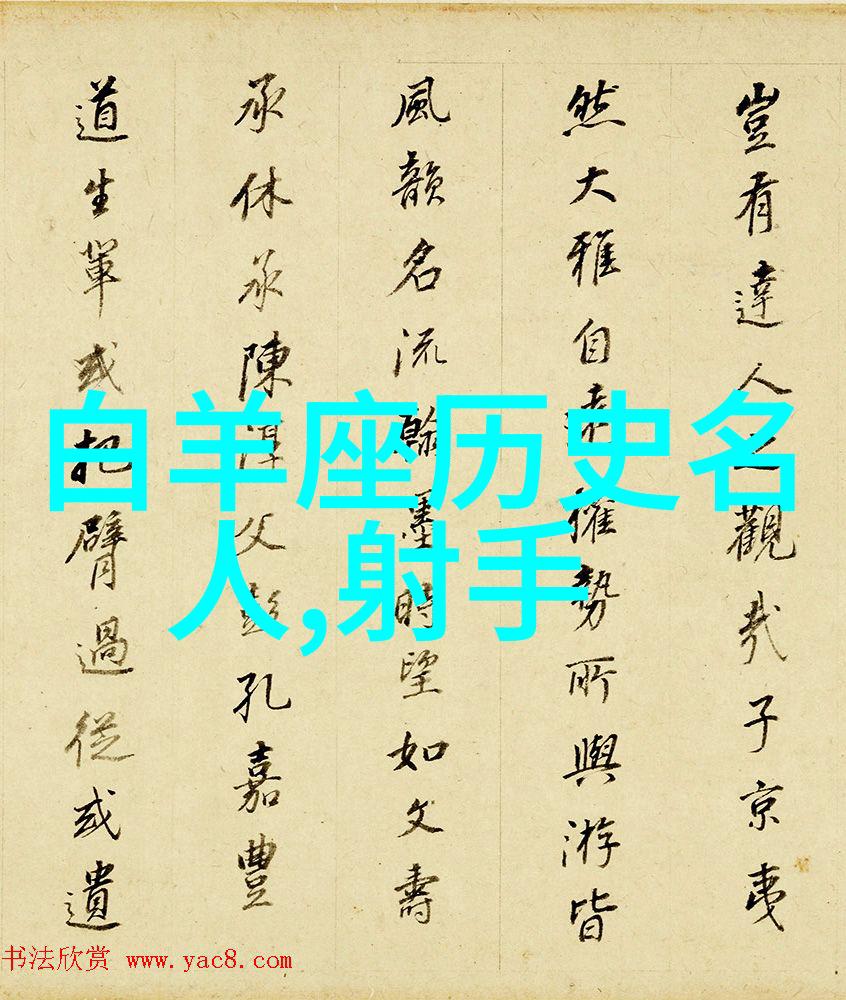 豈有達人之觀哉子京夷
然大雅自權勢所與游皆
風韻名流翰墨時望如文壽
承休承陳淳父彭孔嘉豐
道生輩或把臂過從或遺
白羊座历史名
人,射手
书法欣赏 www.yac8.com